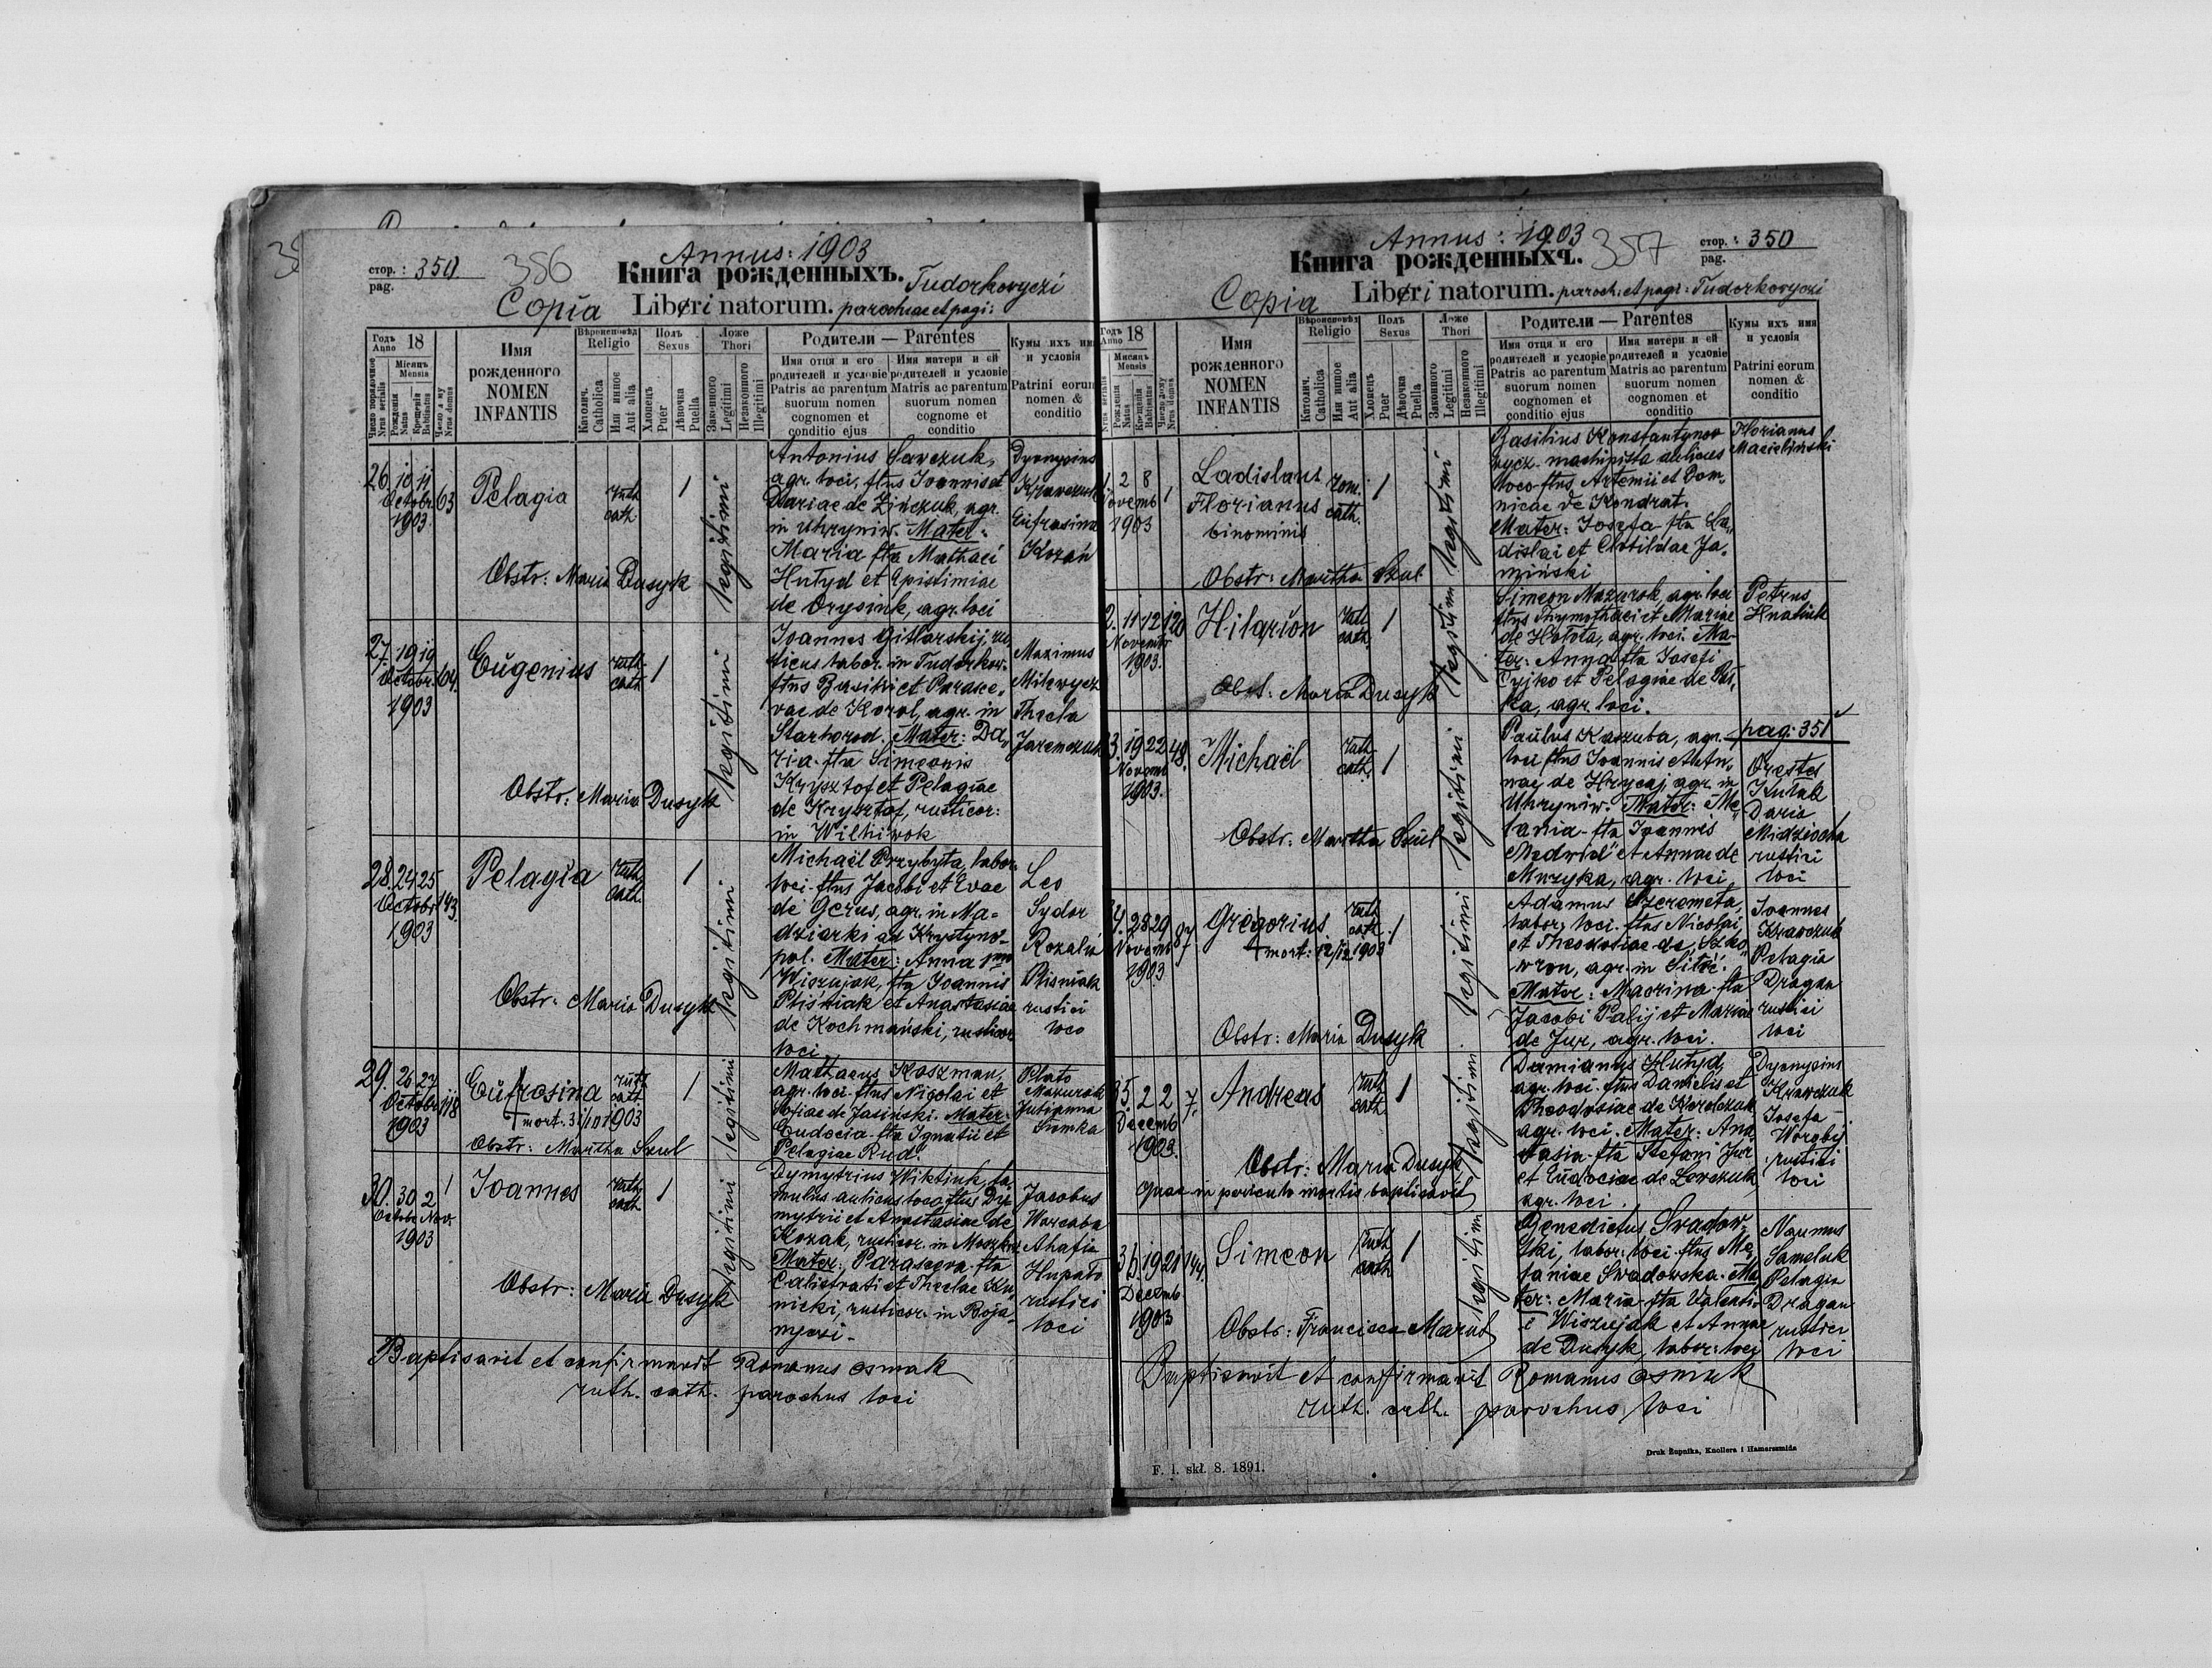 Annus: 1903
стор.: 350
pag.
356
Книга рожденныхъ.
Tudorkowyczi
Copia Liberi natorum. parochiae et pagi:
Годъ Anno 18
Число порядочное Nrus serialis
Мѣсяцъ Mensis
Рожденія Natus
Крещенія Babtisatus
Число дому Nrus domus
Имя рожденного
NOMEN INFANTIS
Вѣроисповѣд Religio
Католич. Catholica
Или инное Aut alia
Полъ Sexus
Хлопецъ Puer
Дѣвочка Puella
Ложе Thori
Законного Legitimi
Незаконного Illegitimi
Родители — Parentes
Имя отця и его родителей и условіе
Patris ac parentum suorum nomen cognomen et conditio ejus
Имя матери и ей родителей и условіе
Matris ac parentum suorum nomen cognome et conditio
Кумы ихъ имя и условія
Patrini eorum nomen & conditio
26. 10 11 63
Octobr.
1903.
Pelagia
ruth. cath.
1
legitimi
Antonius Sawczuk,
agr. loci, ftus Joannis et
Mariae de Zinczuk, agr.
in Uhryniw. Mater:
Maria fta Mathaei
Hutyd et Epistimiae
de Orysiuk, agr. loci
Dyonysius
Krawczuk
Eufrosina
Kozań
Obstr: Maria Dusyk
27. 19 19 64.
Octobr.
1903
Eugenius
ruth. cath.
1
legitimi
Joannes Gitlarskij, rus
ticus labor. in Tudorkow.
ftus Basilii et Parasce-
vae de Korol, agr. in
Starhorod. Mater: Da-
ria fta Simeonis
Krysztof et Pelagiae
de Krysztof, rusticor:
in Wilkiwok
Maximus
Milewycz
Thecla
Jaremczuk
Obstr: Maria Dusyk
28. 24 25 143.
Octobr
1903
Pelagia
ruth. cath.
1
legitimi
Michaël Przybyta, labor.
loci. ftus Jacobi et Evae
de Gerus, agr. in Ma-
dziarki ad Krystyno-
pol. Mater: Anna pmo
Wiszujak, fta Joannis
Pliśniak et Anastasiae
de Kochmański, rusticor
loci
Leo
Sydor
Rozalia
Plisniak
rustici
loco
Obstr: Maria Dusyk
29. 26 27 118
Octobr
1903
Eufrosina
† mort. 31/10 1903
ruth. cath.
1
legitimi
Mathaeus Koszman,
agr. loci. ftus Nicolai et
Sofiae de Jasiński. Mater:
Eudocia fta Ignatii et
Pelagiae Rud.
Plato
Mazurok
Julianna
Sumka
Obstr: Martha Szul
30. 30 2 1
Octobr Nov.
1903
Joannes
ruth. cath.
1
legitimi
Dymytrius Wiktiuk, fa-
mulus aulicus loco, ftus Dy-
mytrii et Anastasiae de
Kozak, rusticor. in Moszkow
Mater: Parascewa fta
Calistrati et Theclae Ku-
nicki, rusticor. in Boja-
nyczi.
Jacobus
Warcaba
Ahafia
Hupało
rustici
loci
Obstr: Maria Dusyk
Baptisavit et confirmavit Romanus Osmak
ruth. cath. parochus loci
Annus: 1903
357
стор.: 350
pag.
Книга рожденныхъ.
Copia Liberi natorum. paroch. et pagi: Tudorkowyczi
Годъ Anno 18
Nrus serialis
Мѣсяцъ Mensis
Рожденія Natus
Крещенія Babtisatus
Число дому Nrus domus
Имя рожденного
NOMEN INFANTIS
Вѣроисповѣд Religio
Католич. Catholica
Или инное Aut alia
Полъ Sexus
Хлопецъ Puer
Дѣвочка Puella
Ложе Thori
Законного Legitimi
Незаконного Illegitimi
Родители — Parentes
Имя отця и его родителей и условіе
Patris ac parentum suorum nomen cognomen et conditio ejus
Имя матери и ей родителей и условіе
Matris ac parentum suorum nomen cognomen et conditio
Кумы ихъ имя и условія
Patrini eorum nomen & conditio
1. 2 8 1
Novemb
1903
Ladislaus
Florianus
binominis
rom. cath.
1
legitimi
Basilius Konstantyno-
wycz machinista aulicus
loco ftus Artemii et Dom-
nicae de Kondrat.
Mater: Josefa fta La-
dislai et Clotildae Ja-
miński
Florianus
Macieliński
Obstr: Martha Szul
2. 11 12 120
Novembr
1903.
Hilarion
ruth. cath.
1
legitimi
Simeon Mazurok, agr. loci
ftus Thymothaei et Mariae
de Hołota, agr. loci. Ma-
ter: Anna fta Josefi
Cyjko et Pelagiae de
agr. loci.
Petrus
Hnatiuk
Obst: Maria Dusyk
3. 19 22 48.
Novemb
1903.
Michaël
ruth. cath.
1
legitimi
Paulus Kaszuba, agr.
loci ftus Joannis et An-
nae de Hrycaj, agr. in
Uhryniw. Mater: Me-
lania fta Joannis
Medwid et Annae de
Muzyka, agr. loci
pag: 351
Orestes
Kulab
Daria
Midziocha
rustici
loci
Obstr: Martha Szul
4. 28 29 87
Novemb
1903
Gregorius
† mort: 12/12 1903
ruth. cath.
1
legitimi
Adamus Szeremeta,
labor. loci. ftus Nicolai
et Theodosiae de Szko-
wron, agr. in Silec.
Mater: Macrina fta
Jacobi Palij et Mariae
de Jur, agr. loci.
Joannes
Krawczuk
Pelagia
Dragan
rustici
loci
Obstr: Maria Dusyk
35. 2 2 7.
Decemb
1903.
Andreas
ruth. cath.
1
legitimi
Damianus Hutyd,
agr. loci. ftus Danielis et
Theodosiae de Korolczuk
agr. loci. Mater: Ana-
stasia fta Stefani Jur
et Eudociae de Lewczuk
agr. loci
Dyonysius
Krawczuk
Josefa
Worobij
rustici
loci
Obstr: Maria Dusyk,
quae in periculo mortis baptisavit
36. 19 21 144.
Decemb
1903
Simeon
ruth. cath.
1
legitimi
Benedictus Swadow-
ski, labor. loci ftus Me-
laniae Swadowska. Ma-
ter: Maria fta Valenti-
i Wiszujak et Annae
de Dusyk, labor: loci
Naumus
Sameluk
Pelagia
Dragan
rustici
loci
Obstr: Francisca Marut
Baptisavit et confirmavit Romanus Osmak
ruth. cath. parochus loci
Druk Żupnika, Knollera i Hamerszmida
F. l. skł. 8. 1891.